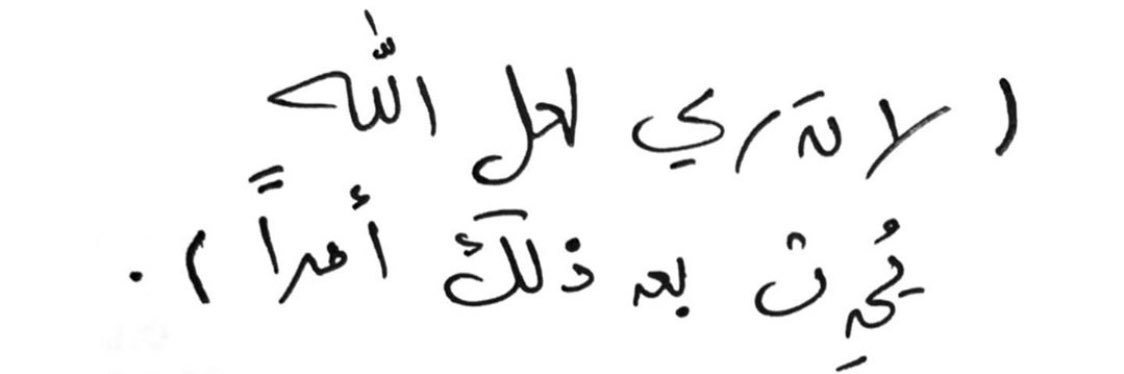 ( لا تدري لعل اللّٰه
يُحدِث بعد ذلكَ أمراً ) .